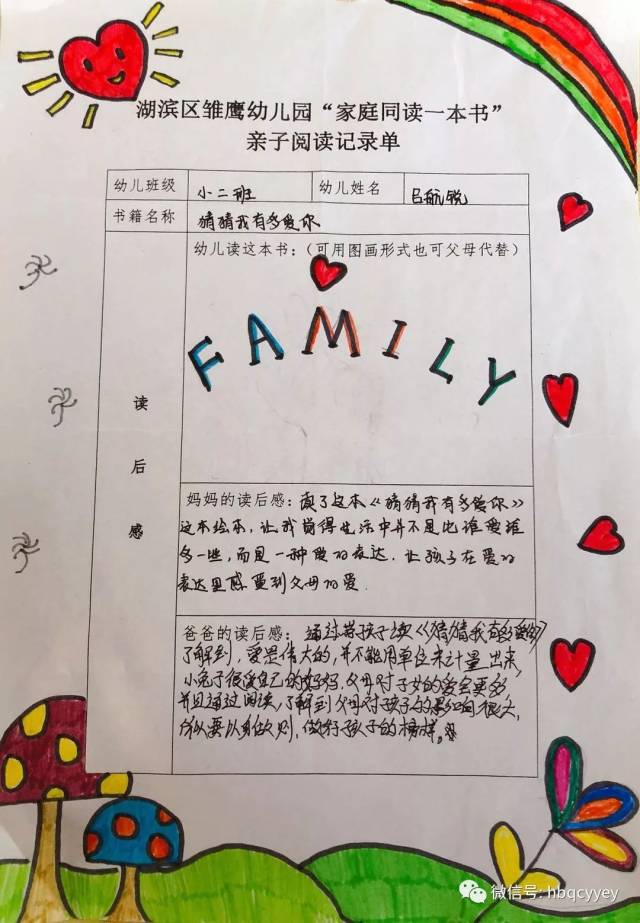 湖滨区雏鹰幼儿园“家庭同读一本书”
亲子阅读记录单
幼儿班级 小二班 幼儿姓名 吕航锐
书籍名称 猜猜我有多爱你
幼儿读这本书：（可用图画形式也可父母代替）
FAMILY
读后感
妈妈的读后感：读了这本《猜猜我有多爱你》
这本绘本，让我觉得生活中并不是比谁爱谁
多一些，而是一种爱的表达．让孩子在爱的
表达里感受到父母的爱．
爸爸的读后感：通过带孩子读《猜猜我有多爱你》
了解到，爱是伟大的，并不能用单位来计量出来，
小兔子很爱自己的妈妈，父母对子女的爱会更多
并且通过阅读，了解到父母对孩子的影响很大，
所以要以身做则，做好孩子的榜样。
微信号: hbqcyyey